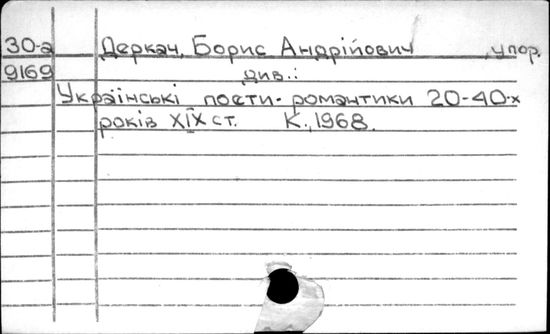 30-а Деркач, Борис Андрійович , упор.
9169 див.:
Українські поети-романтики 20-40-х
років XIX ст. К., 1968.